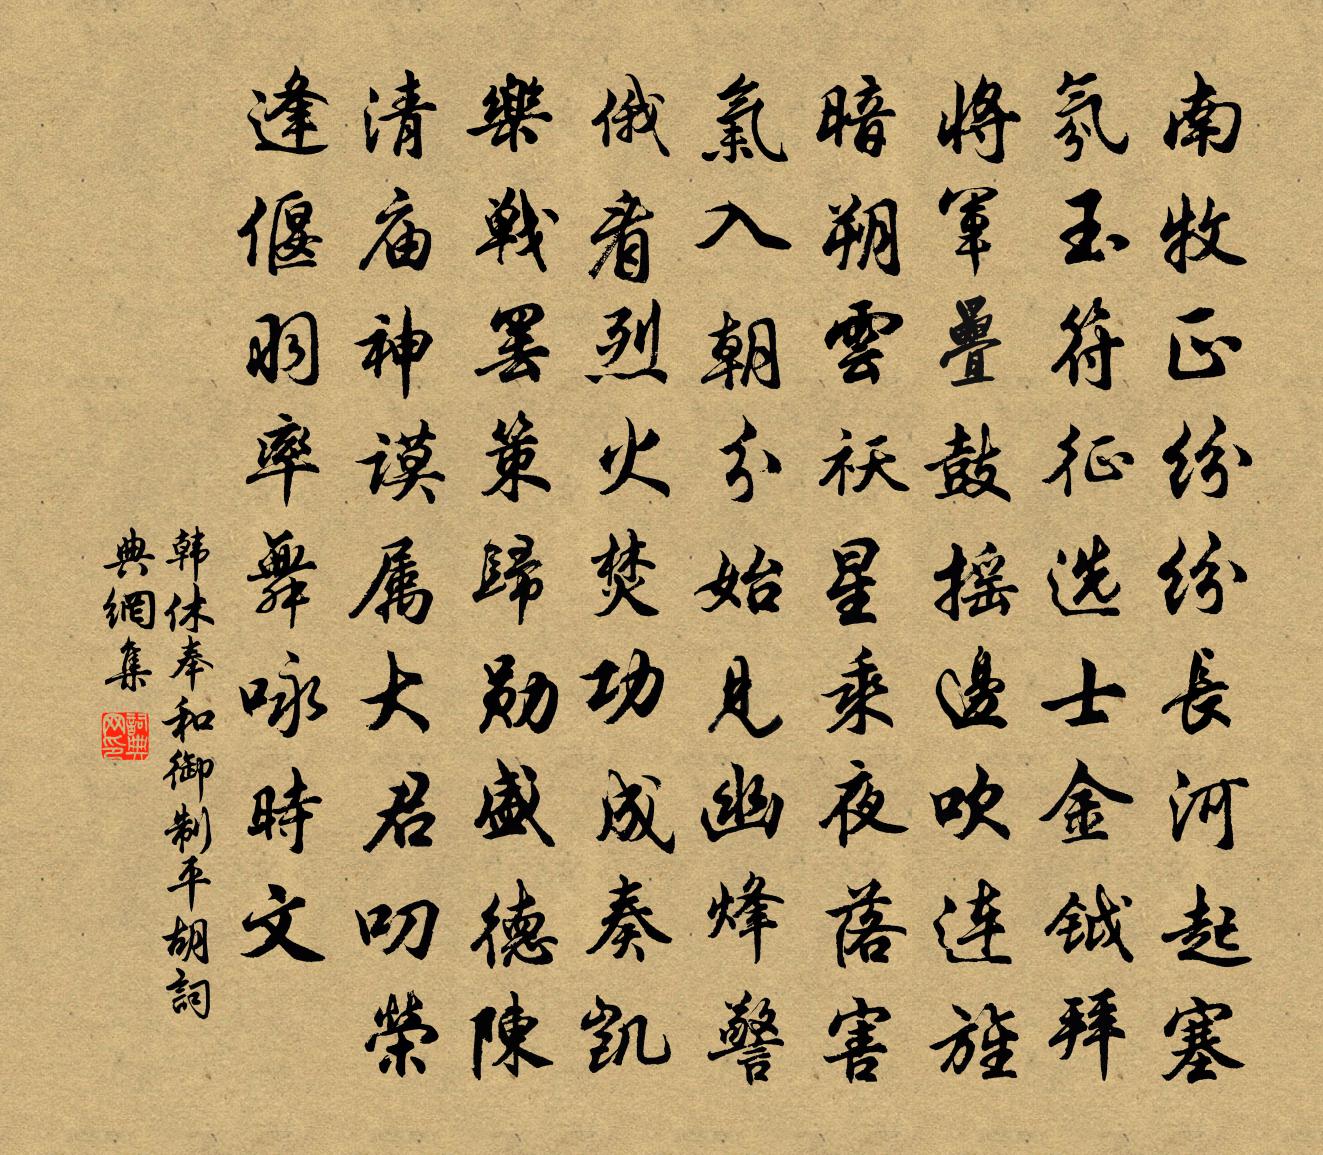 南牧正纷纷長河起塞
氛玉符征选士金钺拜
將軍疊鼓摇邊吹连旌
暗朔雲祆星乘夜落害
氣入朝分始見幽烽警
俄看烈火焚功成奏凱
樂戰罢策歸勋盛德陳
清庙神谟属大君叨榮
逢偃羽率舞咏時文
韩休奉和御制平胡詞
典網集
詞典网印